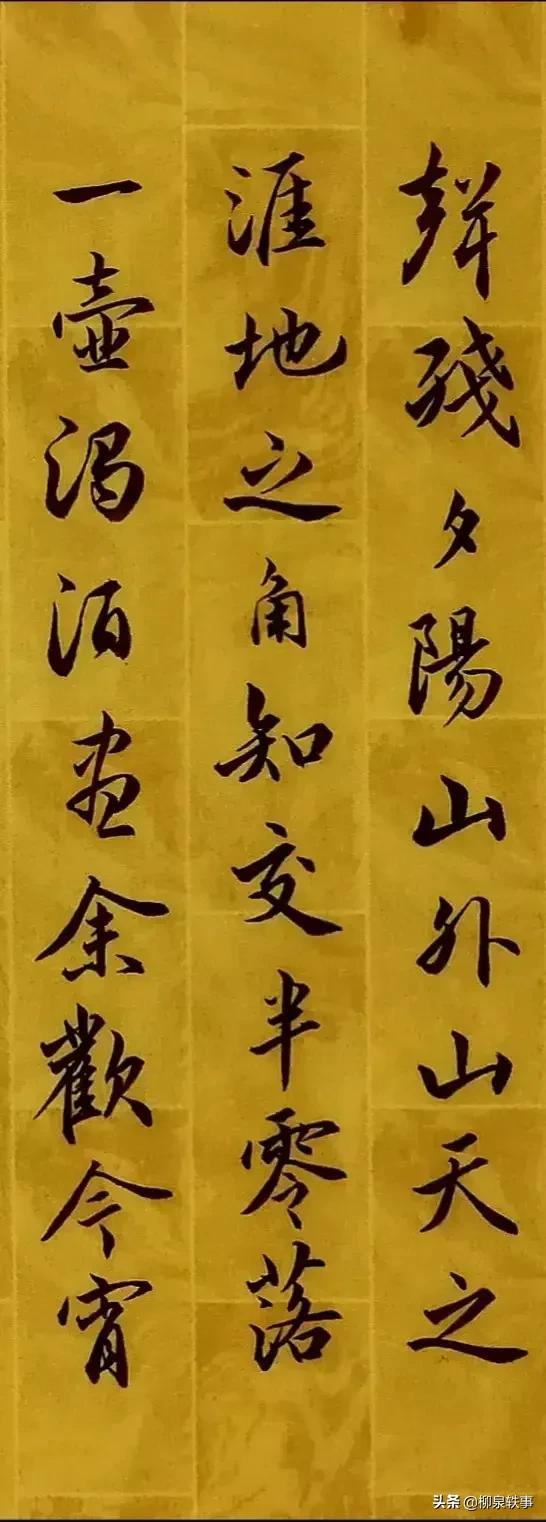 聲殘夕陽山外山天之
涯地之角知交半零落
一壺濁酒盡余歡今宵
头条 @柳泉轶事